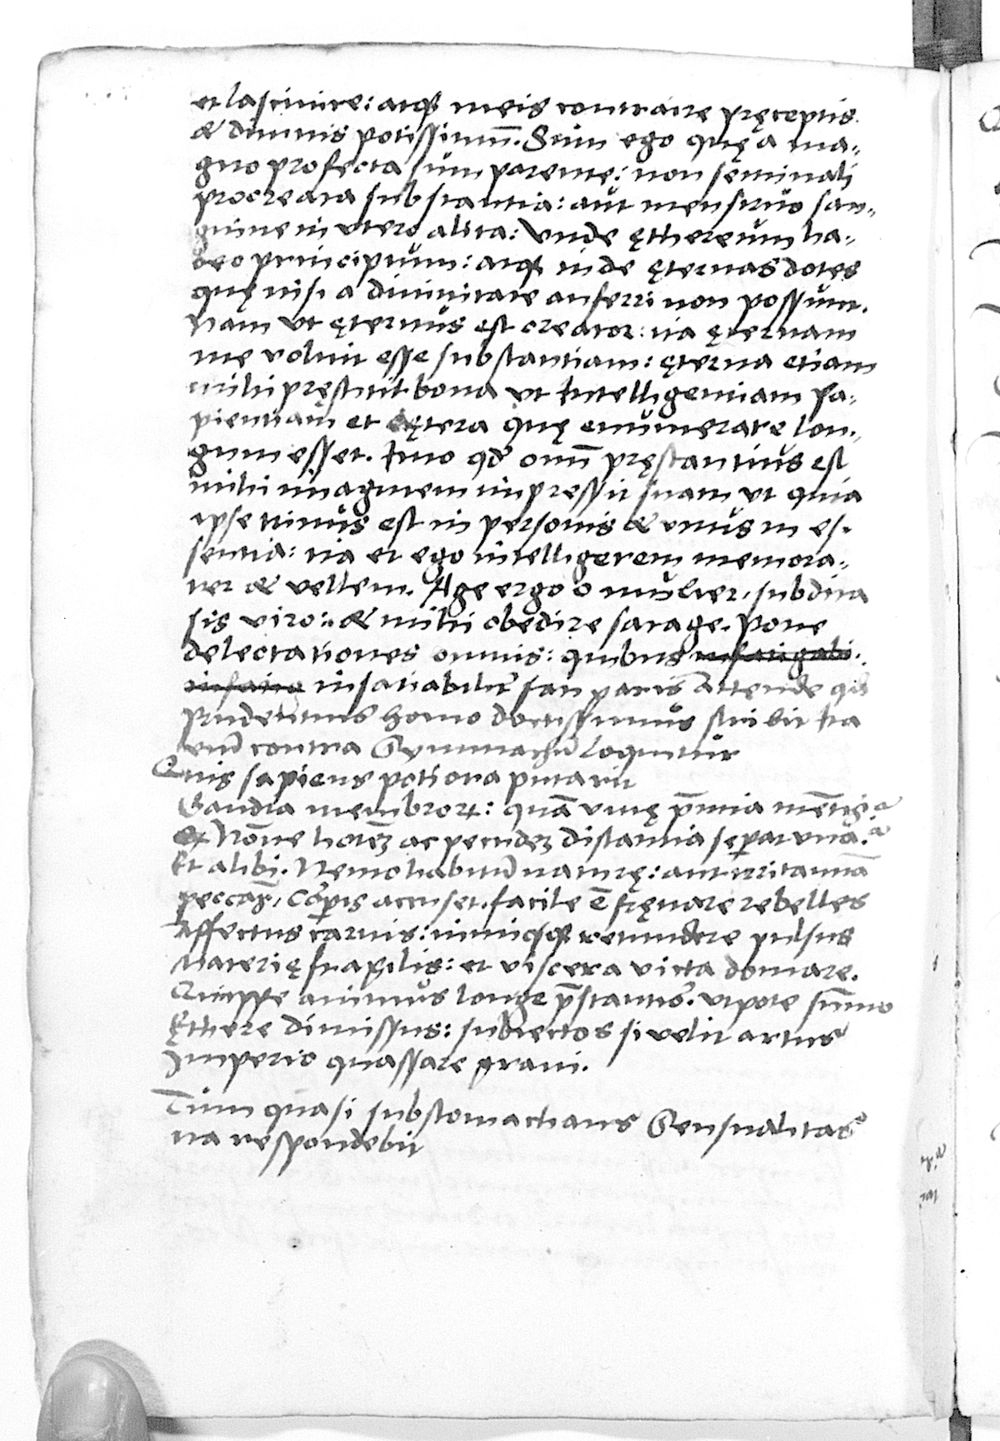 et lasciuire: atq meis contraire pręceptis
& diuinis potissimū. Sum ego quę a ma-
gno profecta sum parente: non seminali
procreata substantia: aut menstruo san-
guine in vtero alita: Vnde ęthereum ha-
beo principium: atq inde ęternas dotes
quę nisi a diuinitate auferri non possunt.
Nam vt ęternus est creator: ita ęternam
me voluit esse substantiam: ęterna etiam
mihi pręstitit bona vt intelligentiam sa-
pientiam et cętera quę enumerare lon-
gum esset. Imo qd omnī pręstantius est
mihi imaginem impressit suam vt quia
ipse trinus est in personis & vnus in es-
sentia: ita et ego intelligerem memora-
rer & vellem. Age ergo o mulier, subdita
sis viro: & mihi obedire satage. pone
delectationes omnis: quibus infatigabi.
infatig insatiabiliter paris Attende qd
prudentius homo doctissimus scribit ita
enī contra Symmachū loquitur
Quis sapiens potiora putarit
Gaudia membrorꝝ: quā viuę p̄mia mētis
& Nōne hoīēz ac pecudēz distantia seꝑat vna.
Et alibi. Nemo habitū naturę: aut irritannā
peccās, corꝑis accuset. facile ē fręnare rebelles
Affectus carnis: nimiosq retundere pulsus
Materię fragilis: et viscera victa domare.
Quippe animus longe p̄stantior. vtpote sūmo
Ęthere dimissus: subiectos si velit artus
Imperio quassare graui.
Tum quasi substomachans Sensualitas
ita respondebit